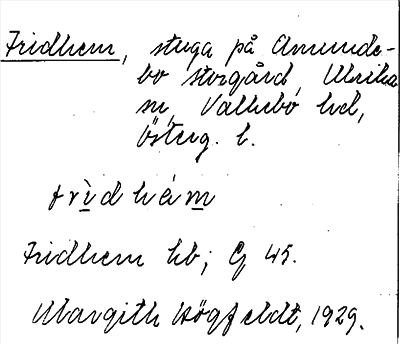 Fridhem, stuga på Amunde-
bo storgård, Ulrika
sn, Vallebo hd,
Österg. l.
frìdhém
Fridhem hb; G 45.
Margith Högfeldt, 1929.